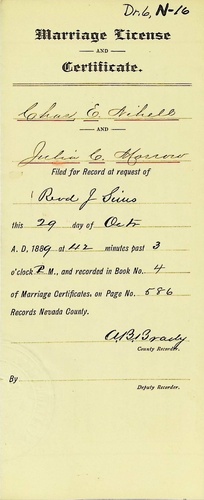 Dr. 6, N-16
Marriage License
AND
Certificate.
Chas E. Nihell
AND
Julia C. Morrow
Filed for Record at request of
Revd J Sims
this 29 day of Octr
A. D. 1889 at 42 minutes past 3
o'clock P. M., and recorded in Book No. 4
of Marriage Certificates, on Page No. 586
Records Nevada County.
A.B. Brady
County Recorder.
By
Deputy Recorder.